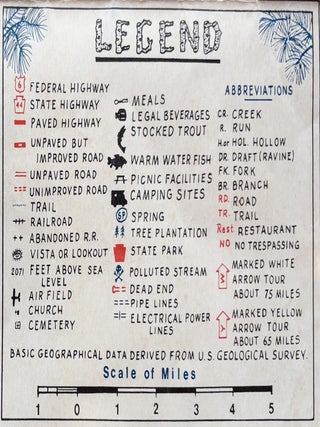 LEGEND
6 FEDERAL HIGHWAY
44 STATE HIGHWAY
PAVED HIGHWAY
UNPAVED BUT
IMPROVED ROAD
UNPAVED ROAD
UNIMPROVED ROAD
TRAIL
RAILROAD
ABANDONED R.R.
VISTA OR LOOKOUT
2071 FEET ABOVE SEA
LEVEL
AIR FIELD
CHURCH
CEMETERY
MEALS
LEGAL BEVERAGES
STOCKED TROUT
WARM WATER FISH
PICNIC FACILITIES
CAMPING SITES
SP SPRING
TREE PLANTATION
STATE PARK
POLLUTED STREAM
DEAD END
PIPE LINES
ELECTRICAL POWER
LINES
ABBREVIATIONS
CR. CREEK
R. RUN
H or HOL. HOLLOW
DR. DRAFT (RAVINE)
FK. FORK
BR. BRANCH
RD. ROAD
TR. TRAIL
Rest. RESTAURANT
NO NO TRESPASSING
W MARKED WHITE
ARROW TOUR
ABOUT 75 MILES
Y MARKED YELLOW
ARROW TOUR
ABOUT 65 MILES
BASIC GEOGRAPHICAL DATA DERIVED FROM U.S. GEOLOGICAL SURVEY.
Scale of Miles
1 0 1 2 3 4 5